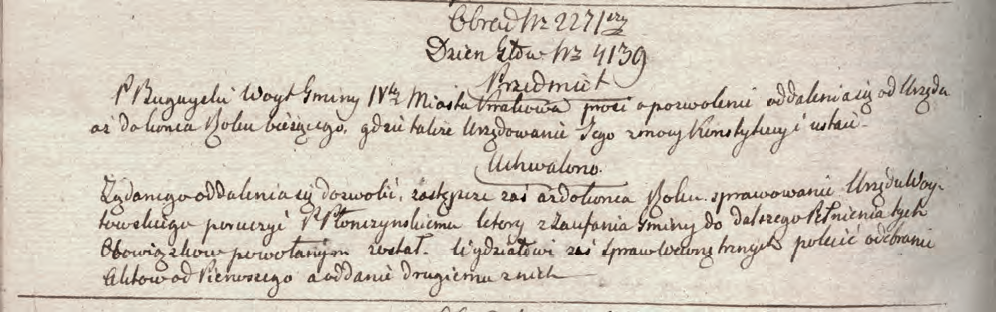 Obrad Nr 2271
Dzien. Głów Nr 4139
Przedmiot
P Woyt Gminy IVtéj Miasta Krakowa prosi o pozwolenie oddalenia się od Urzędu
aż do końca Roku bieżącego, gdzie także Urzędowanie Jego z mocy Konstytucyi ustaie.
Uchwalono.
Żądanego oddalenia się dozwolić, zastępcze zaś aż do końca Roku sprawowanie Urzędu Woy-
towskiego poruczyć P Płonczynskiemu ktory z zaufania Gminy do dalszego Pełnienia tych
Obowiązkow powołanym został. Wydziałowi zaś Spraw Wewnętrznych polecić odebranie
Aktow od Pierwszego a oddanie drugiemu z nich